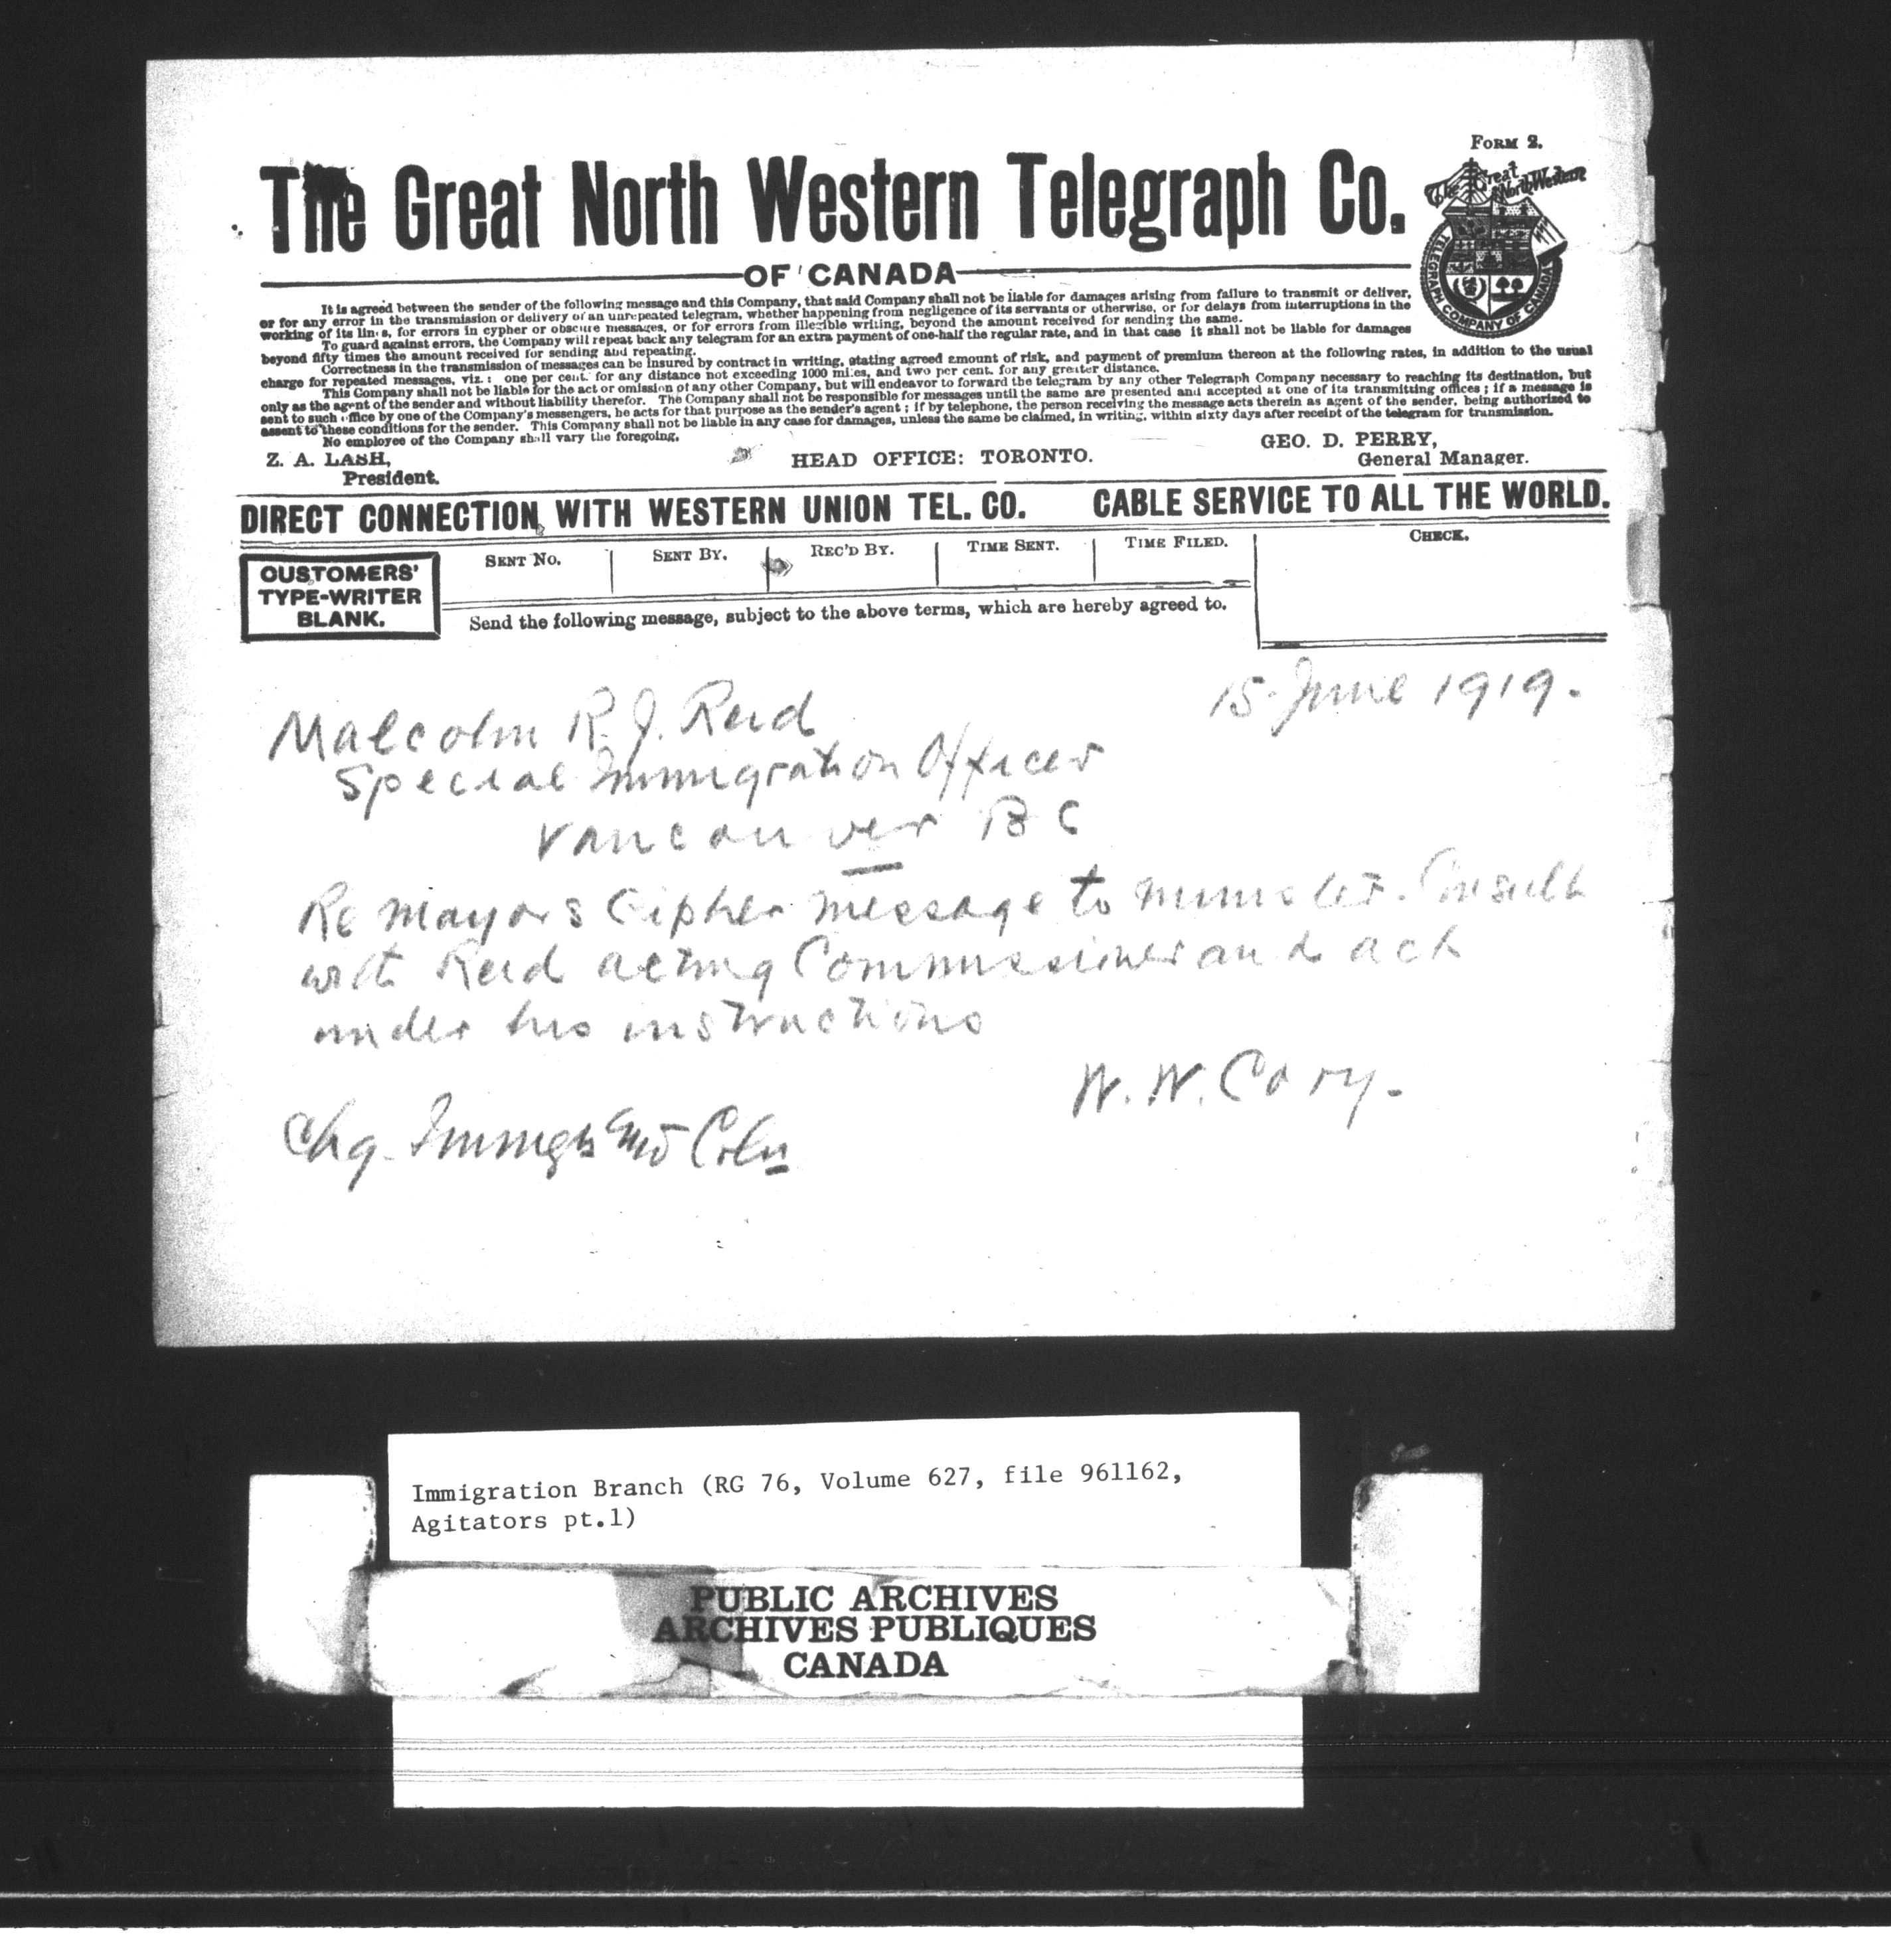 FORM 2.
The Great North Western Telegraph Co.
The Great North Western
TELEGRAPH COMPANY OF CANADA
OF CANADA
It is agreed between the sender of the following message and this Company, that said Company shall not be liable for damages arising from failure to transmit or deliver,
or for any error in the transmission or delivery of an unrepeated telegram, whether happening from negligence of its servants or otherwise, or for delays from interruptions in the
working of its lines, for errors in cypher or obscure messages, or for errors from illegible writing, beyond the amount received for sending the same.
To guard against errors, the Company will repeat back any telegram for an extra payment of one-half the regular rate, and in that case it shall not be liable for damages
beyond fifty times the amount received for sending and repeating.
Correctness in the transmission of messages can be insured by contract in writing, stating agreed amount of risk, and payment of premium thereon at the following rates, in addition to the usual
charge for repeated messages, viz. : one per cent. for any distance not exceeding 1000 miles, and two per cent. for any greater distance.
This Company shall not be liable for the act or omission of any other Company, but will endeavor to forward the telegram by any other Telegraph Company necessary to reaching its destination, but
only as the agent of the sender and without liability therefor. The Company shall not be responsible for messages until the same are presented and accepted at one of its transmitting offices ; if a message is
sent to such office by one of the Company's messengers, he acts for that purpose as the sender's agent ; if by telephone, the person receiving the message acts therein as agent of the sender, being authorized to
assent to these conditions for the sender. This Company shall not be liable in any case for damages, unless the same be claimed, in writing, within sixty days after receipt of the telegram for transmission.
No employee of the Company shall vary the foregoing.
Z. A. LASH,
President.
HEAD OFFICE: TORONTO.
GEO. D. PERRY,
General Manager.
DIRECT CONNECTION WITH WESTERN UNION TEL. CO. CABLE SERVICE TO ALL THE WORLD.
CUSTOMERS'
TYPE-WRITER
BLANK.
SENT NO. SENT BY. REC'D BY. TIME SENT. TIME FILED. CHECK.
Send the following message, subject to the above terms, which are hereby agreed to.
15 June 1919.
Malcolm R. J. Reid
Special Immigration Officer
Vancouver B C
Re mayors Cipher message to minister. Consult
with Reid acting Commissioner and act
under his instructions
W. W. Cory.
Chg. Immign and Coln
Immigration Branch (RG 76, Volume 627, file 961162,
Agitators pt.1)
PUBLIC ARCHIVES
ARCHIVES PUBLIQUES
CANADA